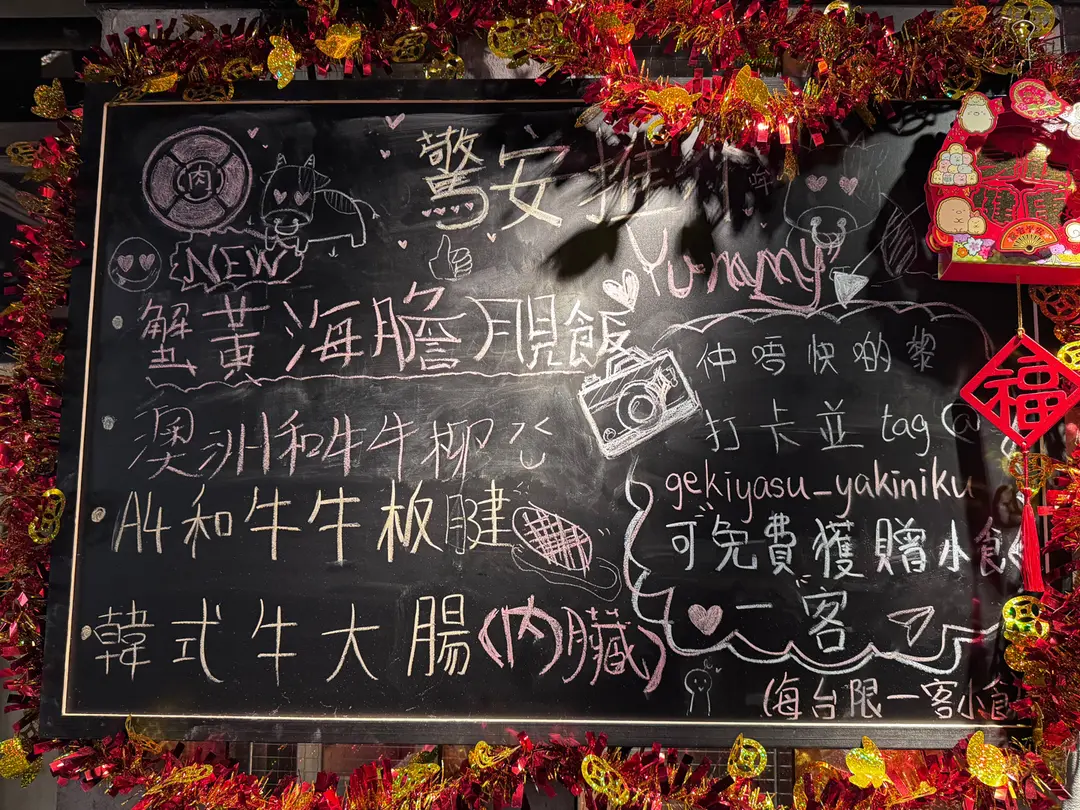 肉
驚安推介
NEW
Yummy
蟹黃海膽月見飯
澳洲和牛牛柳
A4和牛牛板腱
韓式牛大腸(內臟)
仲唔快啲黎
打卡並 tag @
gekiyasu_yakiniku
可免費獲贈小食
一客
(每台限一客小食
健康
福